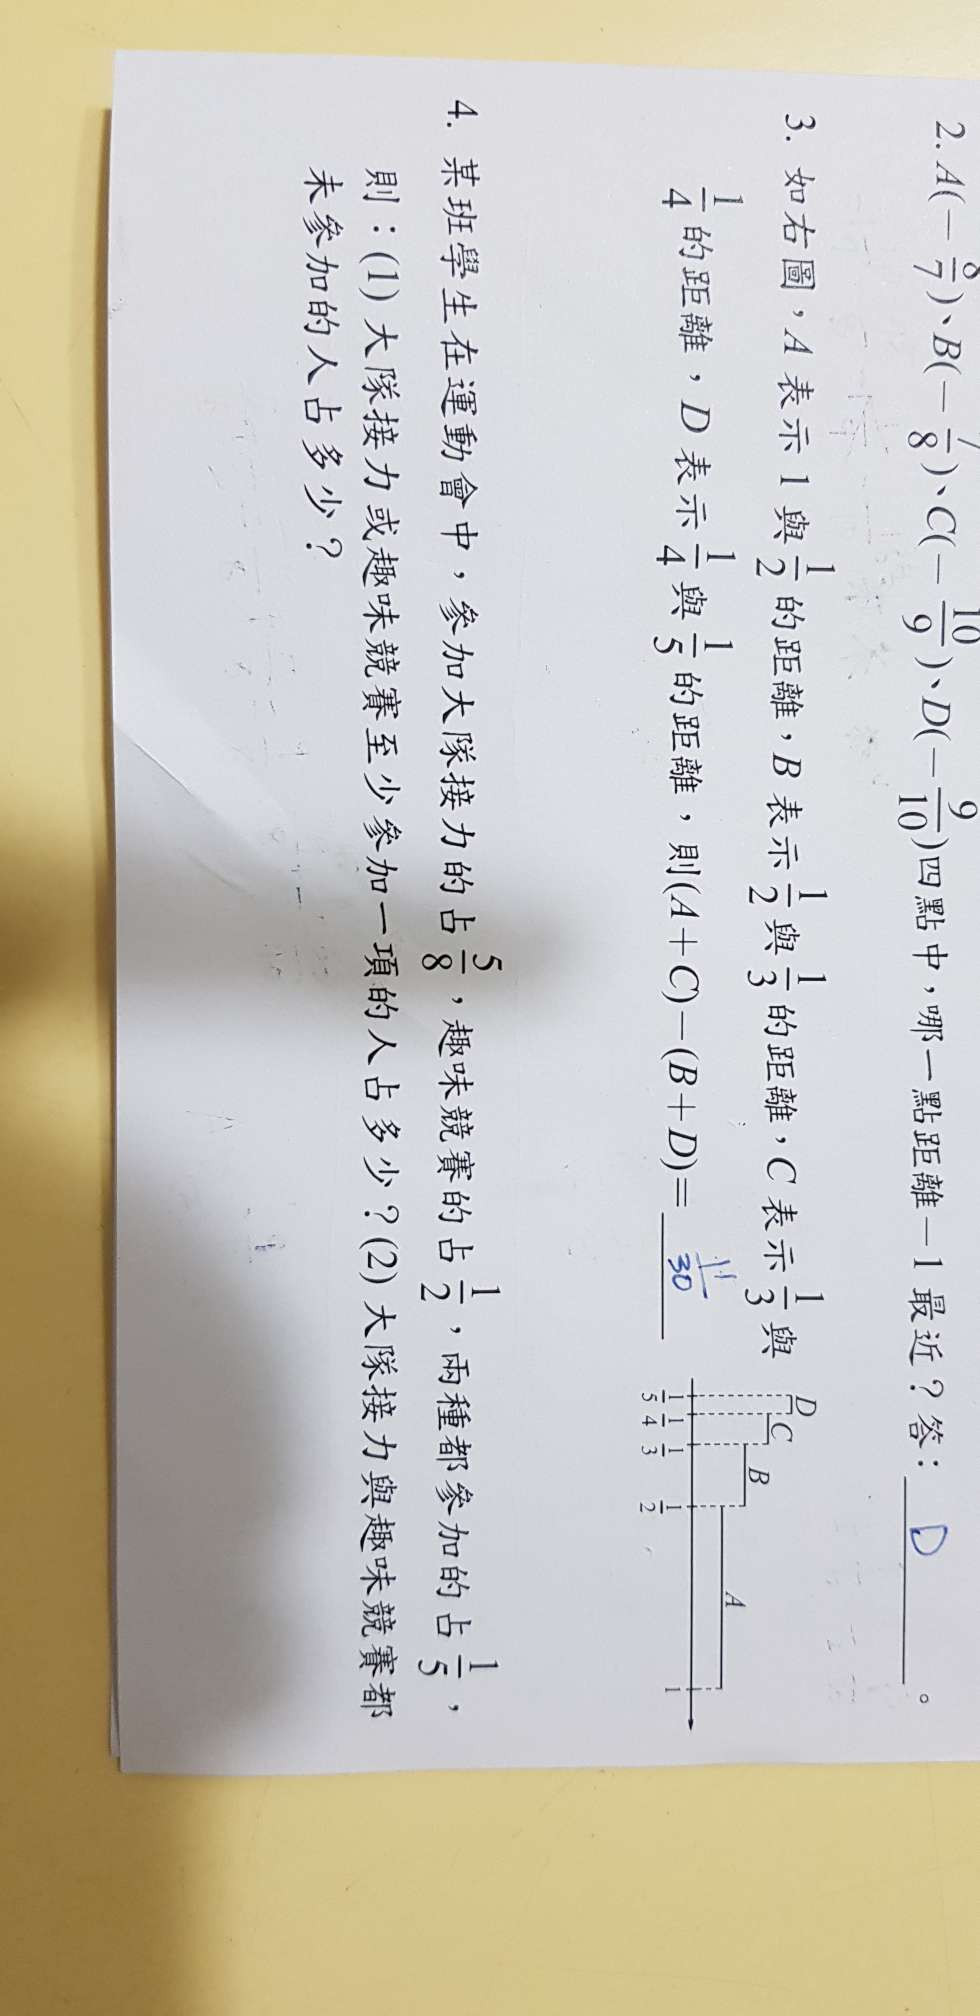 2. A(−8/7)、B(−7/8)、C(−10/9)、D(−9/10)四點中，哪一點距離−1最近？答：D。
3. 如右圖，A 表示 1 與1/2的距離，B 表示1/2與1/3的距離，C 表示1/3與
1/4的距離，D 表示1/4與1/5的距離，則(A＋C)−(B＋D)＝ 11/30
D
C
B
A
1/5 1/4 1/3 1/2 1
4. 某班學生在運動會中，參加大隊接力的占5/8，趣味競賽的占1/2，兩種都參加的占1/5，
則：(1) 大隊接力或趣味競賽至少參加一項的人占多少？(2) 大隊接力與趣味競賽都
未參加的人占多少？